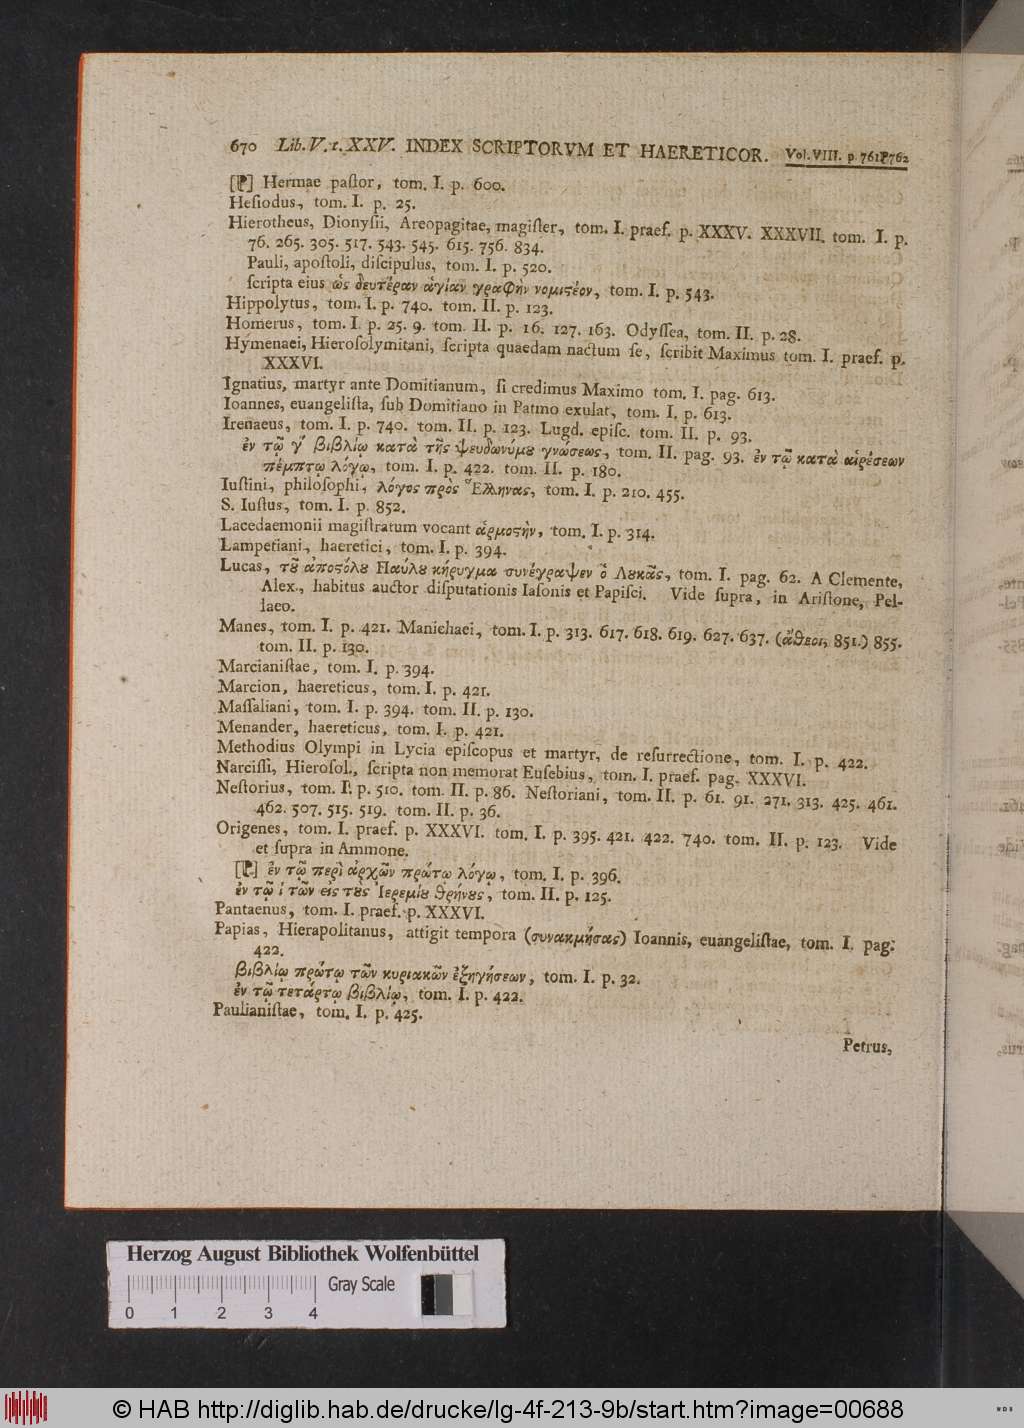 670 Lib. V. t. XXV. INDEX SCRIPTORVM ET HAERETICOR. Vol. VIII. p. 761P762
[P] Hermae paſtor, tom. I. p. 600.
Heſiodus, tom. I. p. 25.
Hierotheus, Dionyſii, Areopagitae, magiſter, tom. I. praef. p. XXXV. XXXVII. tom. I. p.
76. 265. 305. 517. 543. 545. 615. 756. 834.
Pauli, apoſtoli, diſcipulus, tom. I. p. 520.
ſcripta eius ὡς δευτέραν ἁγίαν γραφὴν νομιϛέον, tom. I. p. 543.
Hippolytus, tom. I. p. 740. tom. II. p. 123.
Homerus, tom. I. p. 25. 9. tom. II. p. 16. 127. 163. Odyſſea, tom. II. p. 28.
Hymenaei, Hieroſolymitani, ſcripta quaedam nactum ſe, ſcribit Maximus tom. I. praef. p.
XXXVI.
Ignatius, martyr ante Domitianum, ſi credimus Maximo tom. I. pag. 613.
Ioannes, euangeliſta, ſub Domitiano in Patmo exulat, tom. I. p. 613.
Irenaeus, tom. I. p. 740. tom. II. p. 123. Lugd. epiſc. tom. II. p. 93.
ἐν τῷ γ΄ βιβλίῳ κατὰ τῆς ψευδωνύμȣ γνώσεως, tom. II. pag. 93. ἐν τῷ κατὰ αἱρέσεων
πέμπτῳ λόγῳ, tom. I. p. 422. tom. II. p. 180.
Iuſtini, philoſophi, λόγος πρὸς Ἕλληνας, tom. I. p. 210. 455.
S. Iuſtus, tom. I. p. 852.
Lacedaemonii magiſtratum vocant ἁρμοϛὴν, tom. I. p. 314.
Lampetiani, haeretici, tom. I. p. 394.
Lucas, τȣ͂ ἀποϛόλȣ Παύλȣ κήρυγμα συνέγραψεν ὁ Λουκᾶς, tom. I. pag. 62. A Clemente,
Alex., habitus auctor diſputationis Iaſonis et Papiſci. Vide ſupra, in Ariſtone, Pel-
laeo.
Manes, tom. I. p. 421. Manichaei, tom. I. p. 313. 617. 618. 619. 627. 637. (ἄθεοι, 851.) 855.
tom. II. p. 130.
Marcianiſtae, tom. I. p. 394.
Marcion, haereticus, tom. I. p. 421.
Maſſaliani, tom. I. p. 394. tom. II. p. 130.
Menander, haereticus, tom. I. p. 421.
Methodius Olympi in Lycia epiſcopus et martyr, de reſurrectione, tom. I. p. 422.
Narciſſi, Hieroſol., ſcripta non memorat Euſebius, tom. I. praef. pag. XXXVI.
Neſtorius, tom. I. p. 510. tom. II. p. 86. Neſtoriani, tom. II. p. 61. 91. 271. 313. 425. 461.
462. 507. 515. 519. tom. II. p. 36.
Origenes, tom. I. praef. p. XXXVI. tom. I. p. 395. 421. 422. 740. tom. II. p. 123. Vide
et ſupra in Ammone.
[P] ἐν τῷ περὶ ἀρχῶν πρώτῳ λόγῳ, tom. I. p. 396.
ἐν τῷ ί τῶν εἰς τȣ̀ς Ἱερεμίȣ θρήνȣς, tom. II. p. 125.
Pantaenus, tom. I. praef. p. XXXVI.
Papias, Hierapolitanus, attigit tempora (συνακμήσας) Ioannis, euangeliſtae, tom. I. pag.
422.
βιβλίῳ πρώτῳ τῶν κυριακῶν ἐξηγήσεων, tom. I. p. 32.
ἐν τῷ τετάρτῳ βιβλίῳ, tom. I. p. 422.
Paulianiſtae, tom. I. p. 425.
Petrus,
Herzog August Bibliothek Wolfenbüttel
Gray Scale
0 1 2 3 4
© HAB http://diglib.hab.de/drucke/lg-4f-213-9b/start.htm?image=00688